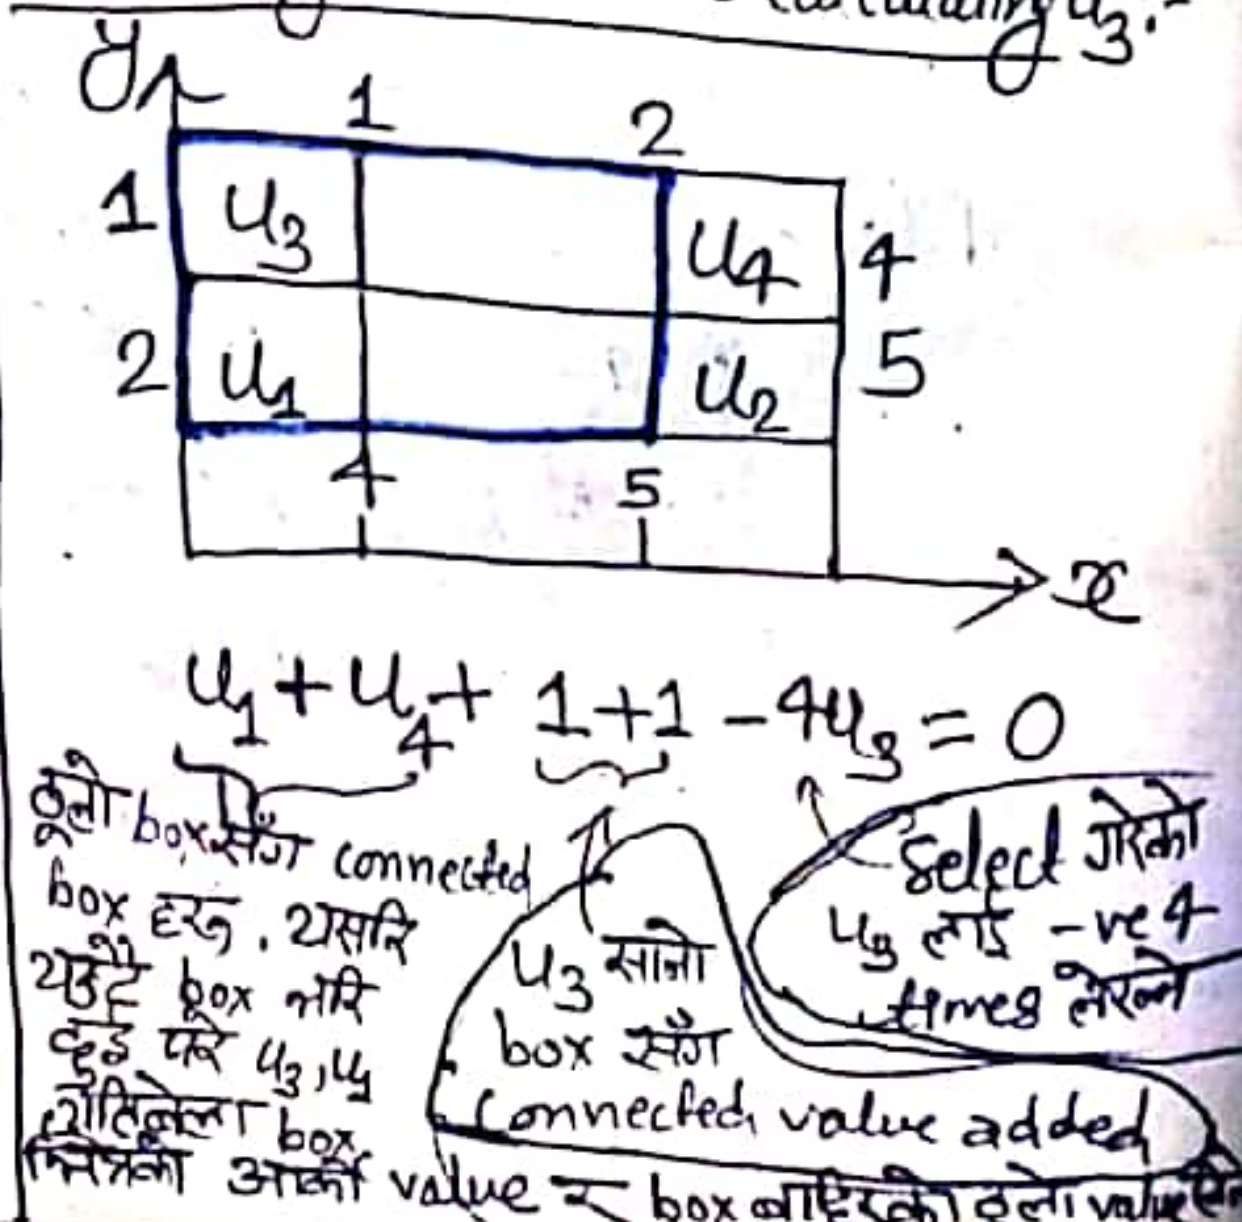 calculating u₃:-
y
1 2
1 u₃ u₄ 4
2 u₁ u₂ 5
4 5
x
u₁ + u₄ + 1+1 - 4u₃ = 0
ठूलो box सँग connected
box हरु, यसरि
यउटै box भरि
दुई परे u₃, u₁
box
भित्रको अर्को value र box बाहिरको ठूलो value
u₃ सानो
box सँग
connected value added
Select गरेको
u₃ लाई -ve 4
times लेख्ने